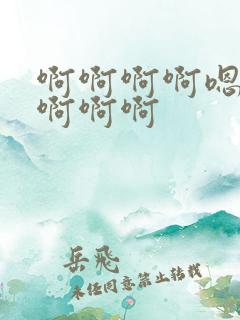 啊啊啊啊嗯
啊啊啊
岳飛
未经同意禁止转载